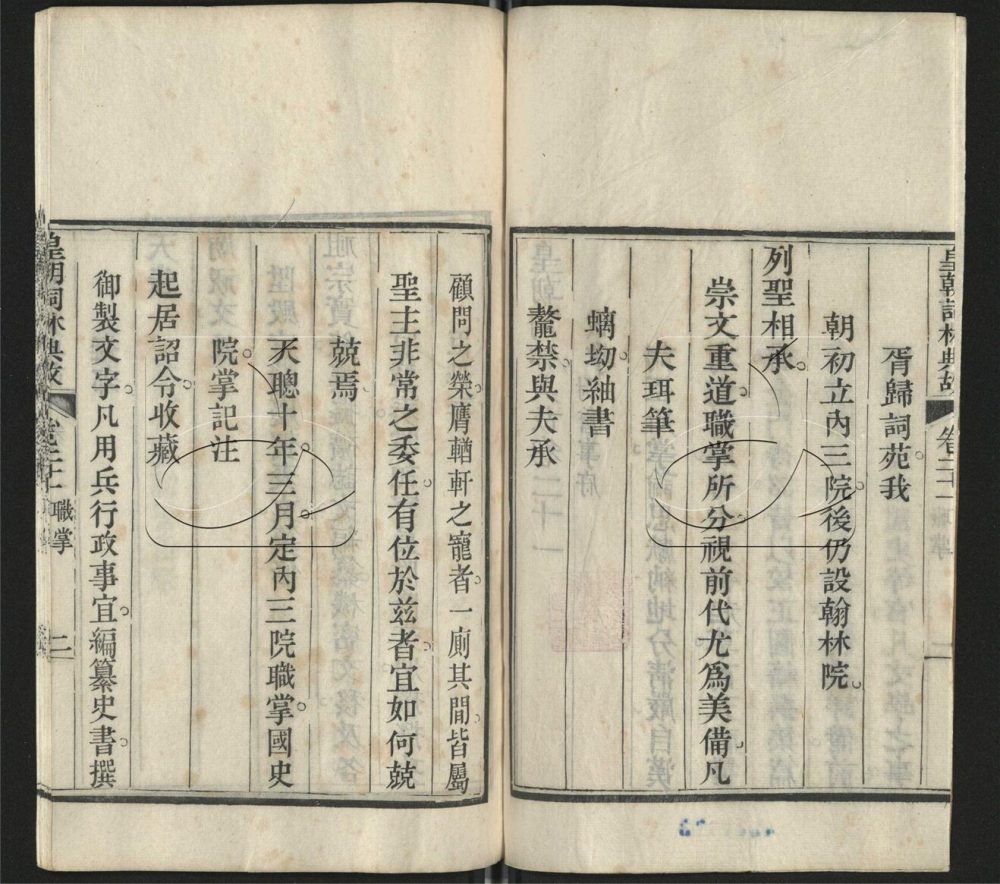 皇朝詞林典故 卷二十一 職掌 一
胥歸詞苑我
朝初立內三院後仍設翰林院
列聖相承
崇文重道職掌所分視前代尤爲美備凡
夫珥筆
螭坳紬書
鼇禁與夫承
顧問之榮膺輶軒之寵者一廁其閒皆屬
聖主非常之委任有位於兹者宜如何兢
兢焉
天聰十年三月定內三院職掌國史
院掌記注
起居詔令收藏
御製文字凡用兵行政事宜編纂史書撰
皇朝詞林典故 卷二十一 職掌 二